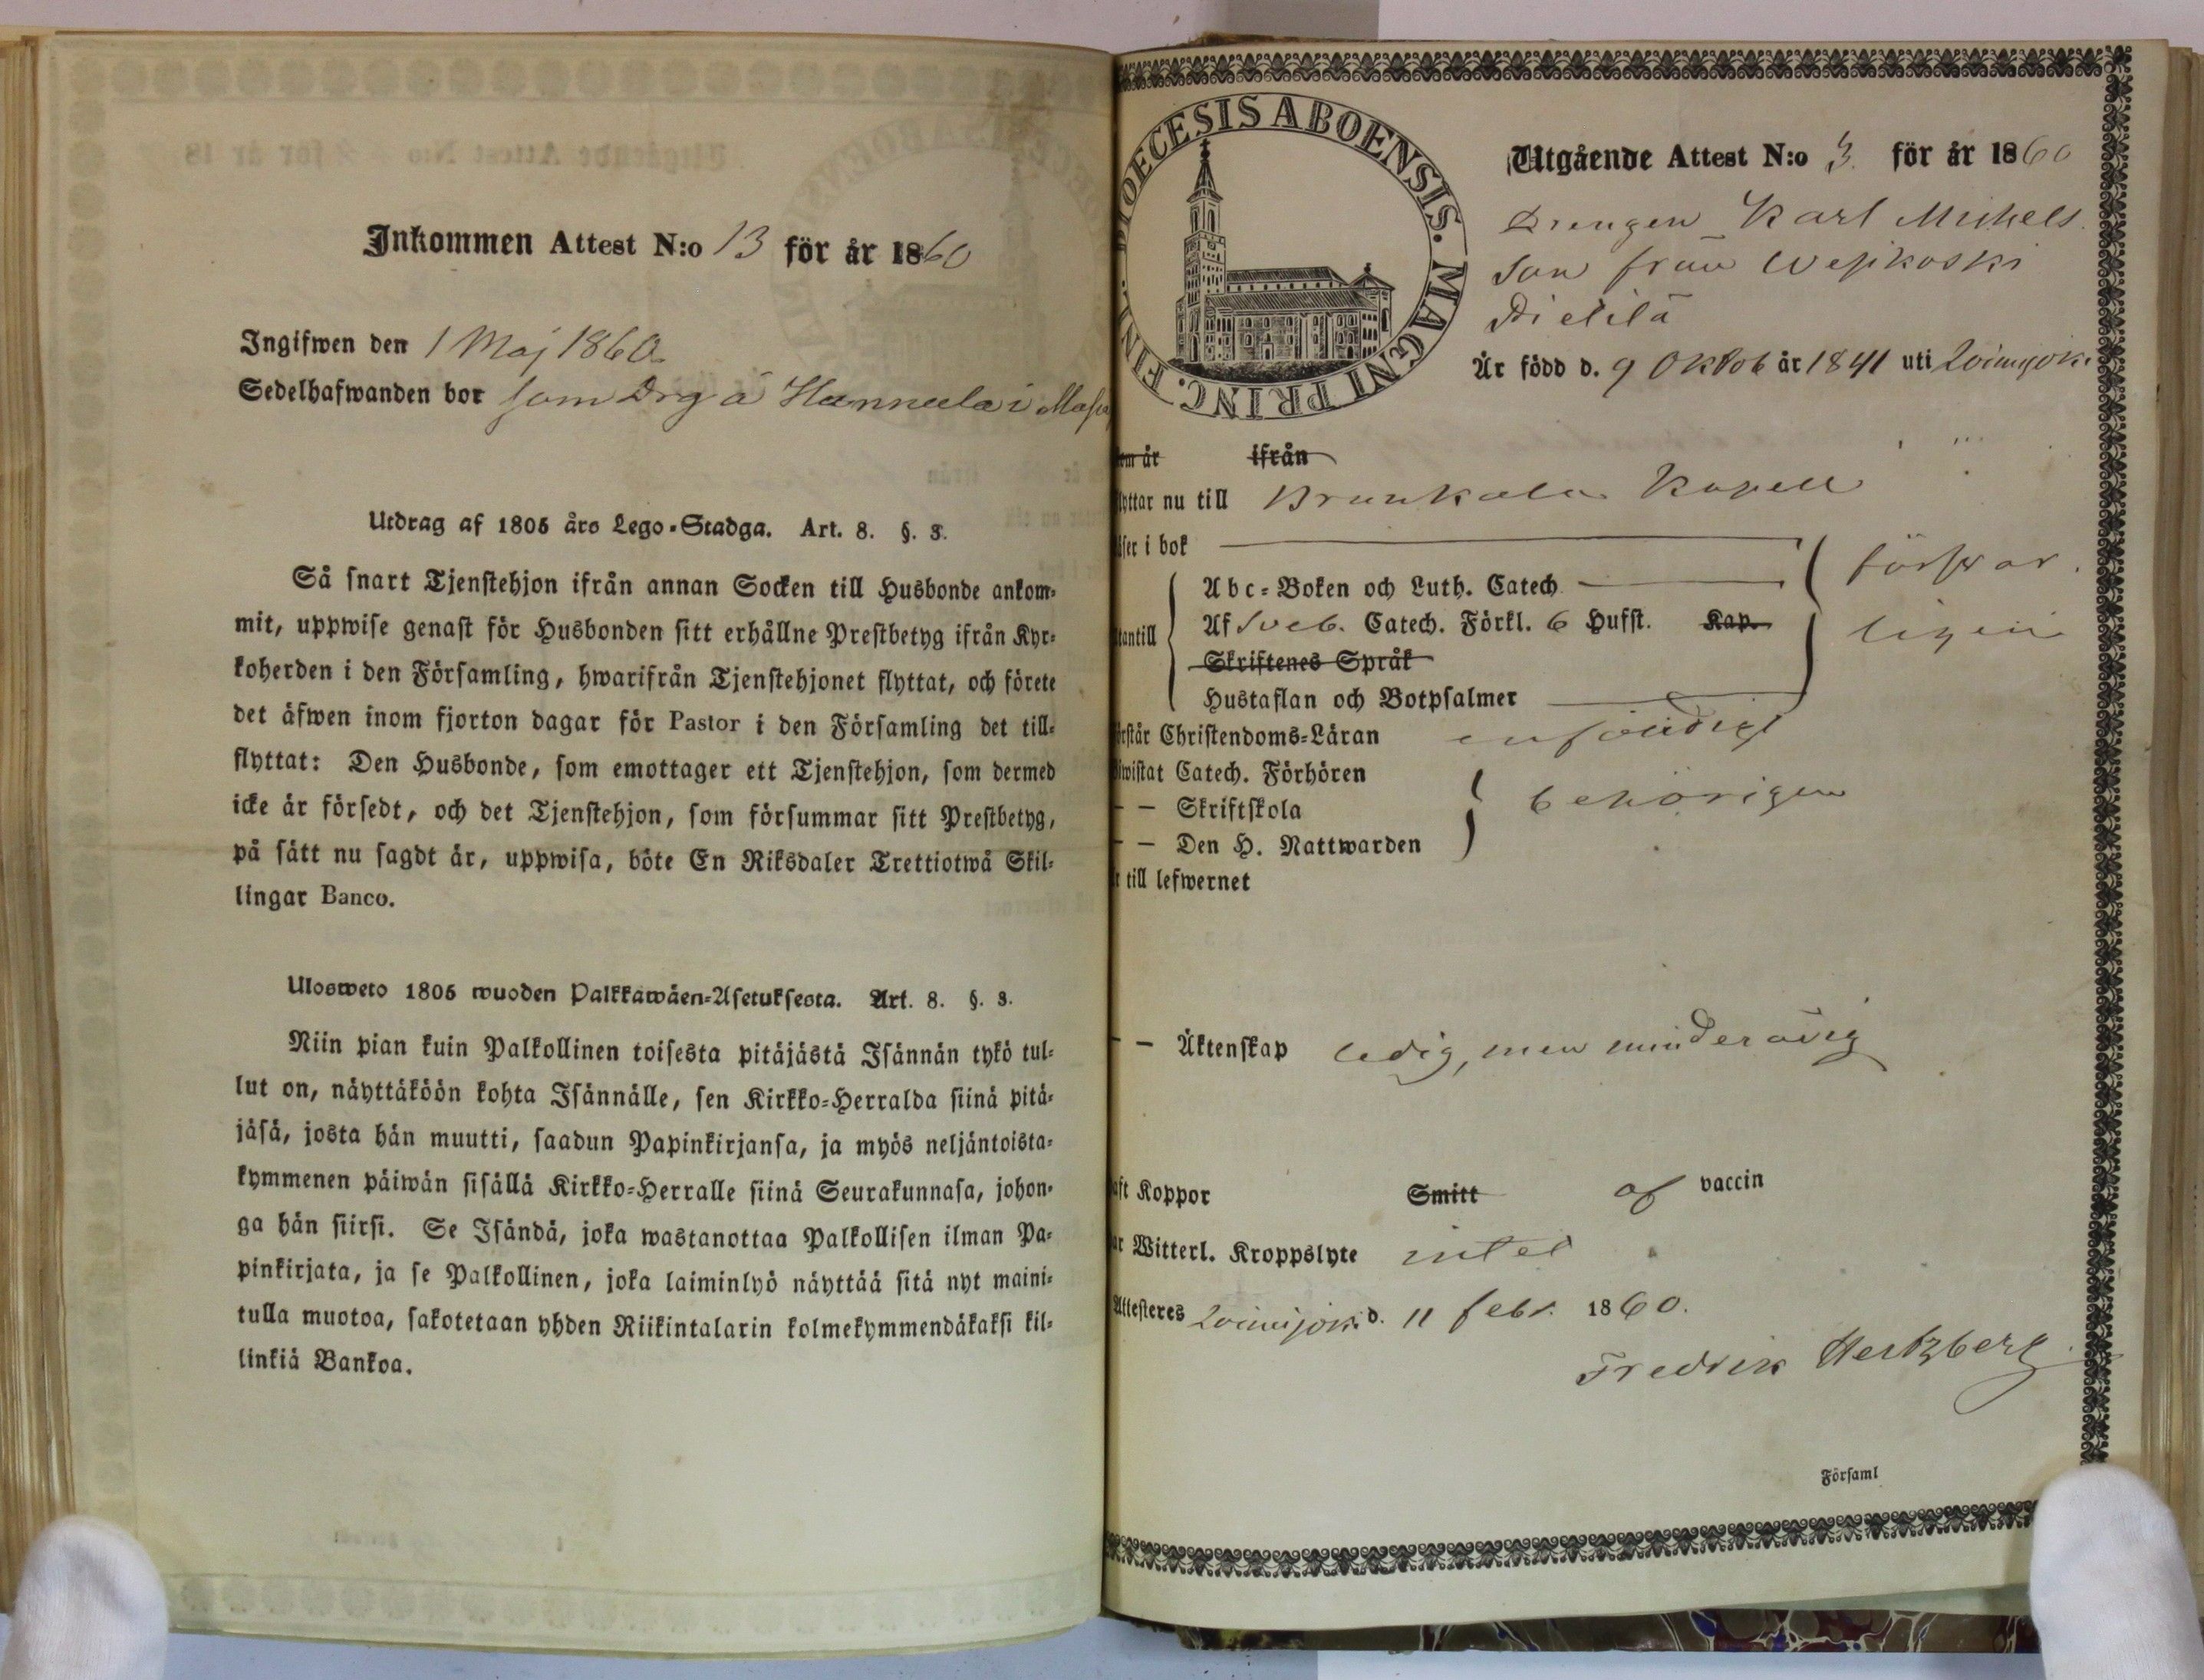 Inkommen Attest N:o 13 för år 1860
Ingifwen den 1 Maj 1860.
Sedelhafwanden bor som Drg å Hannula i
Utdrag af 1805 års Lego-Stadga. Art. 8. §. 3.
Så snart Tjenstehjon ifrån annan Socken till Husbonde ankom-
mit, uppwise genast för Husbonden sitt erhållne Prestbetyg ifrån Kyr-
koherden i den Församling, hwarifrån Tjenstehjonet flyttat, och förete
det äfwen inom fjorton dagar för Pastor i den Församling det till-
flyttat: Den Husbonde, som emottager ett Tjenstehjon, som dermed
icke är försedt, och det Tjenstehjon, som försummar sitt Prestbetyg,
på sätt nu sagdt är, uppwisa, böte En Riksdaler Trettiotwå Skil-
lingar Banco.
Ulosweto 1805 wuoden Palkkawäen-Asetuksesta. Art. 8. §. 3.
Niin pian kuin Palkollinen toisesta pitäjästä Isännän tykö tul-
lut on, näyttäköön kohta Isännälle, sen Kirkko-Herralda siinä pitä-
jäsä, josta hän muutti, saadun Papinkirjansa, ja myös neljäntoista-
kymmenen päiwän sisällä Kirkko-Herralle siinä Seurakunnasa, johon-
ga hän siirsi. Se Isändä, joka wastanottaa Palkollisen ilman Pa-
pinkirjata, ja se Palkollinen, joka laiminlyö näyttää sitä nyt maini-
tulla muotoa, sakotetaan yhden Riikintalarin kolmekymmendäkaksi kil-
linkiä Bankoa.
DIOECESIS ABOENSIS. MAGNI PRINC. FINL.
Utgående Attest N:o 3. för år 1860
Drengen Karl Michels
son från Wesikoski
Är född d. 9 Oktob år 1841 uti Loimijoki
som är ifrån
flyttar nu till Brunkala Kapell
läser i bok
Abc-Boken och Luth. Catech.
försvar
utantill
Af Sveb. Catech. Förkl. 6 Hufst. Kap.
ligen
Skriftenes Språk
Hustaflan och Botpsalmer
förstår Christendoms-Läran enfäldigt
biwistat Catech. Förhören
– – Skriftskola
behörigen
– – Den H. Nattwarden
är till lefwernet
– – Äktenskap ledig, men minderårig
haft Koppor Smitt af vaccin
har Witterl. Kroppslyte intet
Attesteres Loimijoki d. 11 febr. 1860.
Fredrik Hertzberg
Församl